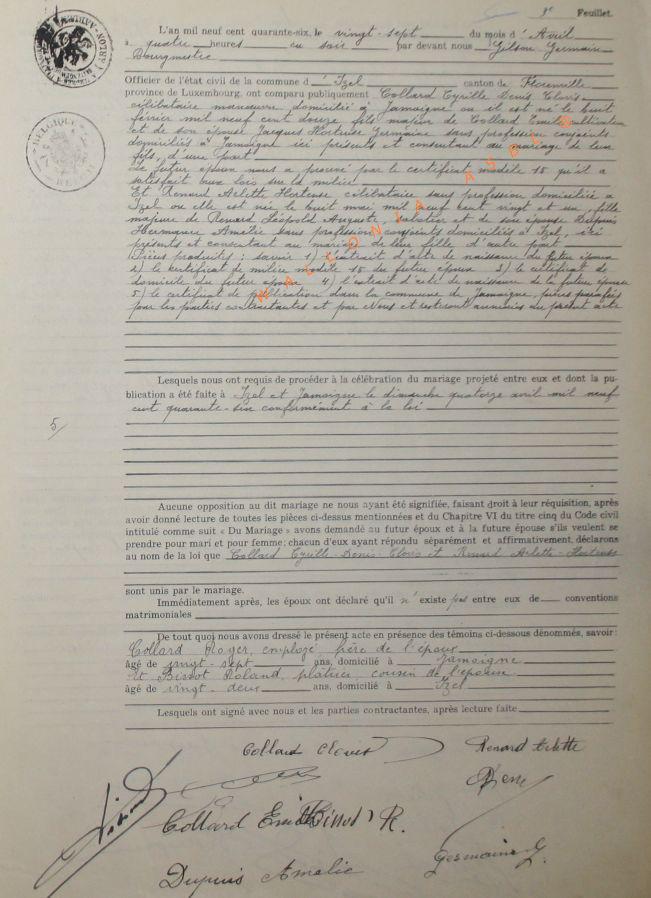 9e Feuillet.
L'an mil neuf cent quarante-six, le vingt-sept du mois d'Avril
à quatre heures du soir par devant nous Gilson Germain
Bourgmestre
Officier de l'état civil de la commune d' Izel canton de Florenville
province de Luxembourg, ont comparu publiquement Collard Cyrille Denis Clovis
célibataire manœuvre domicilié à Jamoigne où il est né le huit
février mil neuf cent douze fils majeur de Collard Emile cultivateur
et de son épouse Jacques Hortense Germaine sans profession conjoints
domiciliés à Jamoigne ici présents et consentant au mariage de leur
fils, d'une part
Le futur époux nous a prouvé par le certificat modèle 15 qu'il a
satisfait aux lois sur la milice
Et Renard Arlette Hortense célibataire sans profession domiciliée à
Izel où elle est née le huit mai mil neuf cent vingt et un, fille
majeure de Renard Léopold Auguste, et de son épouse Dupuis
Hermance Amélie sans profession conjoints domiciliés à Izel, ici
présents et consentant au mariage de leur fille d'autre part
Pièces produites : savoir 1) l'extrait d'acte de naissance du futur époux
2) le certificat de milice modèle 15 du futur époux 3) le certificat de
domicile du futur époux 4) l'extrait d'acte de naissance de la future épouse
5) le certificat de publication dans la commune de Jamoigne, pièces paraphées
par les parties contractantes et par Nous et resteront annexées au présent acte
WALLONIA ASBL
Lesquels nous ont requis de procéder à la célébration du mariage projeté entre eux et dont la pu-
blication a été faite à Izel et Jamoigne le dimanche quatorze avril mil neuf
cent quarante-six conformément à la loi
5/
Aucune opposition au dit mariage ne nous ayant été signifiée, faisant droit à leur réquisition, après
avoir donné lecture de toutes les pièces ci-dessus mentionnées et du Chapitre VI du titre cinq du Code civil
intitulé comme suit « Du Mariage » avons demandé au futur époux et à la future épouse s'ils veulent se
prendre pour mari et pour femme; chacun d'eux ayant répondu séparément et affirmativement, déclarons
au nom de la loi que Collard Cyrille-Denis-Clovis et Renard Arlette-Hortense
sont unis par le mariage.
Immédiatement après, les époux ont déclaré qu'il n'existe pas entre eux de conventions
matrimoniales
De tout quoi nous avons dressé le présent acte en présence des témoins ci-dessous dénommés, savoir :
Collard Roger, employé, frère de l'époux
âgé de vingt-sept ans, domicilié à Jamoigne
et Bissot Roland, platrier, cousin de l'épouse
âgé de vingt-deux ans, domicilié à Izel
Lesquels ont signé avec nous et les parties contractantes, après lecture faite
Collard Clovis Renard Arlette
Collard Emile Bissot R.
Dupuis Amélie Germaine J.